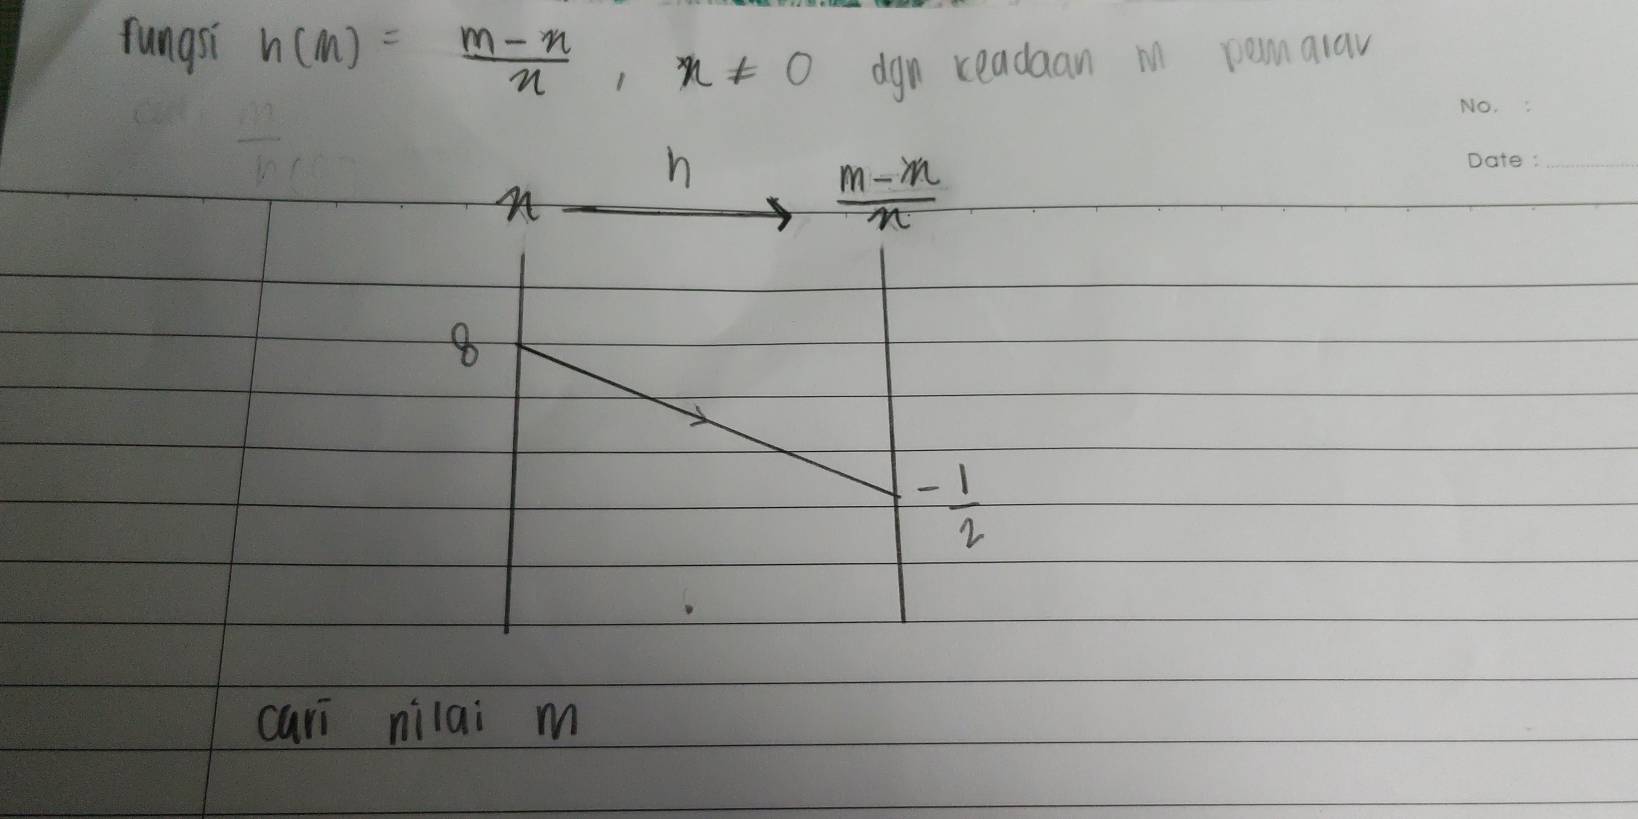 Fungsi h(m) = m - x / x , x ≠ 0 dgn keadaan m pemalar
No. :
Date :
x h m - x / x
8
- 1/2
cari nilai m